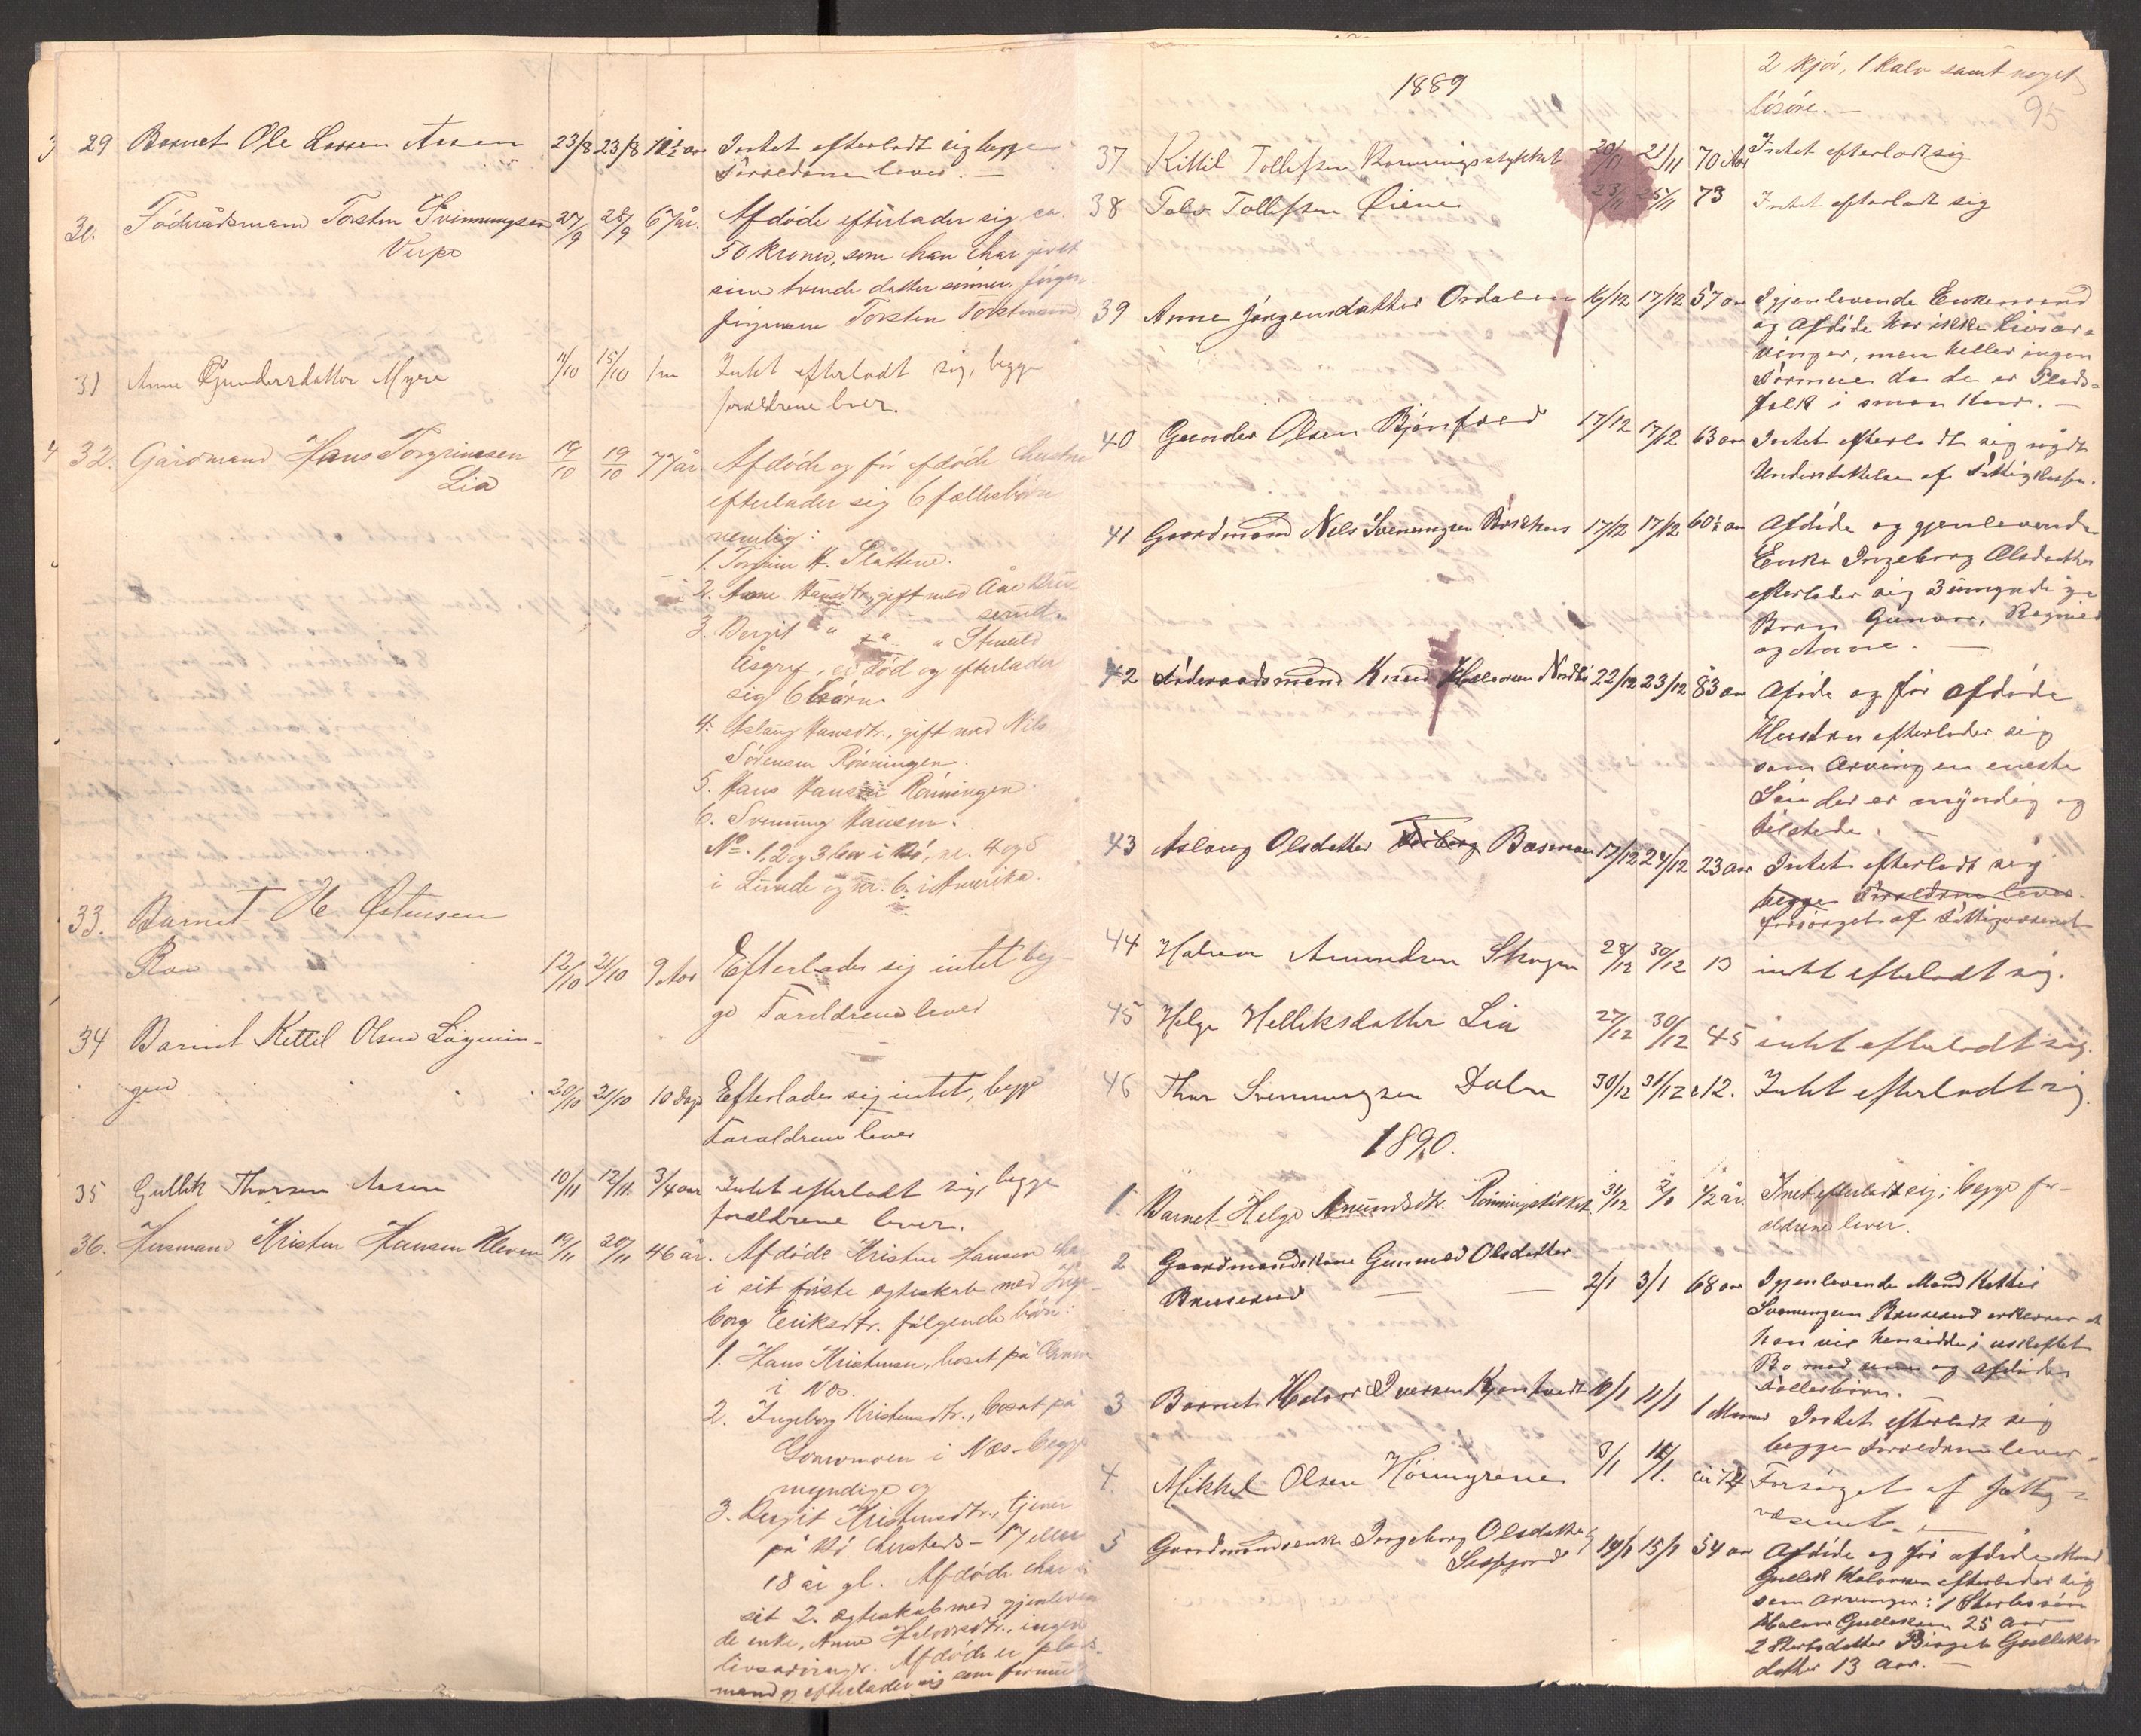 3 29 Barnet Ole Larsen Aasen 23/8 23/8 1½ aar Intet efterladt sig begge
Forældrene lever. —
30. Födraadsmand Torsten Svenningsen 27/9 28/9 67 år. Afdöde efterlader sig ca.
Verpe
50 kroner, som han har givet
sine tvende datter sönner, Jörgen
Jörgensen Torsten Torstensen
31 Anne Gundersdatter Myra 11/10 15/10 1 m Intet efterladt sig, begge
forældrene lever.
4 32. Gårdmand Hans Torgrimsen 19/10 19/10 77 år. Afdöde og för afdöde hustru
Lia
efterlader sig 6 fællesbörn
nemlig:
1. Torgrim H. Slåttene.
2. Anne Hansdtr., gift med Aae
3. Bergit " " "
Åsgrf, er död og efterlader
sig 6 börn.
4. Aslaug Hansdtr., gift med Nils
Sörensen Rönningen.
5. Hans Hansen Rönningen.
6. Svenning Hansen.
No. 1, 2 og 3 lever i Bö, nr. 4 og 5
i Lunde og nr. 6. i Amerika.
33. Barnet Ole Østensen
Roe 12/10 21/10 9 Aar Efterlader sig intet beg-
ge Forældrene lever
34 Barnet Kettil Olsen Lögnin-
gen 20/10 21/10 10 Dage Efterlader sig intet, begge
Forældrene lever
35 Gullik Thorsen Aasen 10/11 12/11. 3/4 aar Intet efterladt sig, begge
forældrene lever.
36. Husmand Kristen Hansen Kleven 19/11 20/11 46 år. Afdöde Kristen Hansen har
i sit förste ægteskab med Inge-
borg Eriksdtr. fölgende börn:
1. Hans Kristensen, bosat på
i Næs.
2. Ingeborg Kristensdtr., bosat på
i Næs – begge
myndige og
3. Bergit Kristensdtr., tjener
på Bö – 17 eller
18 år gl. Afdöde har i
sit 2. ægteskab med gjenleven
de enke, Anne Halvorsdtr., ingen
livsarvinger. Afdöde er plads-
mand og efterlader sig som formue
1889
2 kjör, 1 kalv samt noget
lösöre. —
95
37 Kittil Tollefsen Rønningsstykket 20/11 21/11 70 Aar Intet efterladt sig
38 Talv Tollefsen Øiene 23/11 25/11 73 Intet efterladt sig
39 Anne Jørgensdatter Ordalen 16/12 17/12 57 aar Igjenlevende Enkemand
og Afdöde har ikke Livsar-
vinger, men heller ingen
Formue da de er Plads-
folk i smaa Kaar. —
40 Gunder Olsen Bjönfred 17/12 17/12 63 aar Intet efterladt sig nydt
Understøttelse af Fattigkassen.
41 Gaardmand Nils Svenungsen 17/12 17/12 60½ aar Afdöde og gjenlevende
Enke Ingeborg Olsdatter
efterlader sig 3 umyndige
Børn Gunvor, Ragnild
og Anne. —
42 Föderaadsmand Knud Halvorsen Nordbö 22/12 23/12 83 aar Afdöde og för afdöde
Hustru efterlader sig
som Arving en eneste
Sön der er myndig og
tilstede. —
43 Aslaug Olsdatter Torborg Basenen 17/12 24/12 23 aar Intet efterladt sig
begge Forældrene lever.
forsörget af Fattigvæsenet
44 Halvor Amundsen Skogen 28/12 30/12 13 intet efterladt sig.
45 Helge Helliksdatter Lia 27/12 30/12 45 intet efterladt sig.
46 Thor Svennungsen Dalen 30/12 31/12 c 12. Intet efterladt sig.
1890.
1. Barnet Helge Amundsdtr. Rönningstikket 31/12 2/1 1/2 år. Intet efterladt sig; begge for-
ældrene lever.
2 Gaardmandskone Gunnild Olsdatter
Bruserud — — 2/1 3/1 68 aar Igjenlevende Mand Kettil
Svenungsen Bruserud erklærer at
han vil hensidde i uskiftet
Bo med og afdödes
Fællesbörn.
3 Barnet Halvor Iversen Kjonstvedt 10/1 11/1 1 Maaned Intet efterladt sig
begge Forældrene lever.
4. Mikkel Olsen Höimyrene 8/1 11/1. ca 74 Forsörget af fattig-
væsenet. —
5 Gaardmandsenke Ingeborg Olsdatter 14/1 15/1 54 aar Afdöde og för afdöde Mand
Gullik Halvorsen efterlader sig
som Arvinger: 1 Sterbssön
Halvor Gulliksen 25 Aar
2 Sterbsdatter Birgit Gulliks-
datter 13 Aar. —